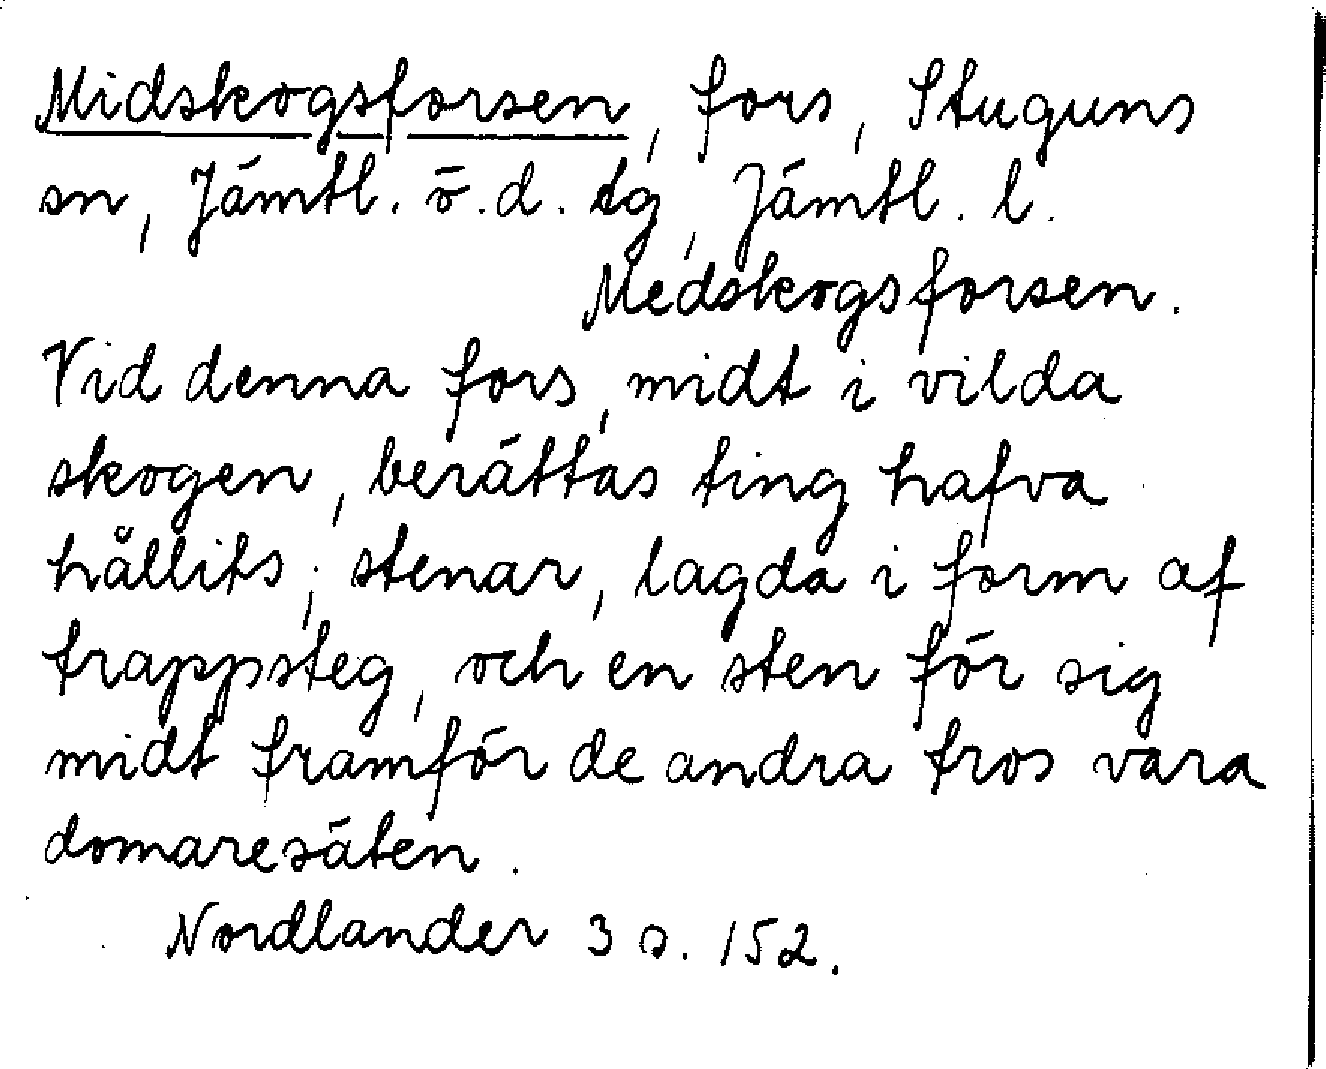 Midskogsforsen, fors, Stuguns
sn, Jämtl. ö. d. tg, Jämtl. l.
Medskogsforsen.
Vid denna fors, midt i vilda
skogen, berättas ting hafva
hållits; stenar, lagda i form af
trappsteg, och en sten för sig
midt framför de andra tros vara
domaresäten.
Nordlander 3 s. 152.